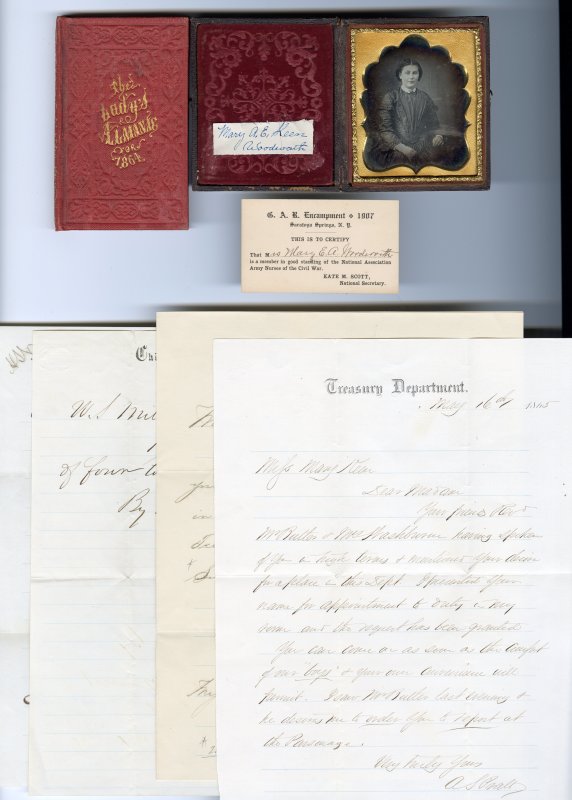 the
Lady's
ALMANAC
FOR
1864.
Mary A. E. Keen
Woodworth
G. A. R. Encampment 1907
Saratoga Springs, N. Y.
THIS IS TO CERTIFY
That M iss Mary E. A. Woodworth
is a member in good standing of the National Association
Army Nurses of the Civil War.
KATE M. SCOTT,
National Secretary.
W. S.
of four
By
in
Treasury Department.
May 16th 1865
Miss Mary Keen
Dear Madam
Your friend Rev'd
Mr Butler & Mrs Washburne having spoken
of you in high terms & mentioned your desire
for a place in this Dept I presented your
name for appointment to duty in my
room and the request has been granted
You can come on as soon as the comfort
of our 'boys' & your own convenience will
permit. I saw Mr Butler last evening &
he desires me to order you to report at
the Parsonage.
Very truly yours